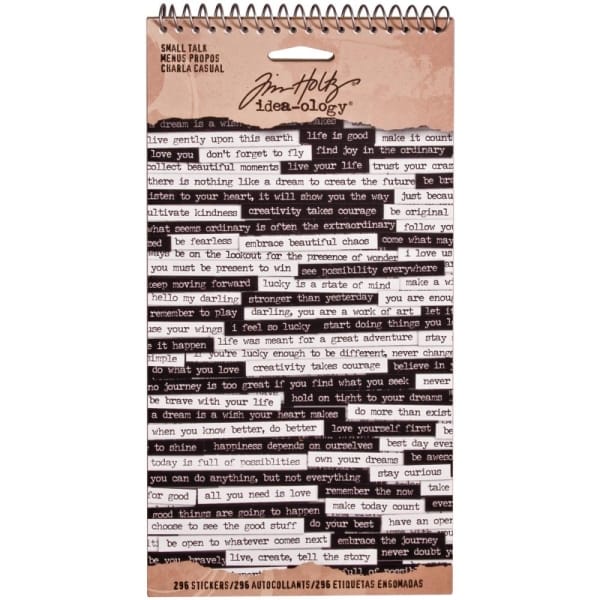 SMALL TALK
MENUS PROPOS
CHARLA CASUAL
Tim Holtz
idea-ology®
a dream is a wish makes
live gently upon this earth life is good make it count
love you don't forget to fly find joy in the ordinary
collect beautiful moments live your life trust your craz
there is nothing like a dream to create the future be bra
listen to your heart, it will show you the way just becau
ultivate kindness creativity takes courage be original
what seems ordinary is often the extraordinary follow you
be fearless embrace beautiful chaos come what may
ways be on the lookout for the presence of wonder i love us
you must be present to win see possibility everywhere
keep moving forward lucky is a state of mind make a wi
hello my darling stronger than yesterday you are enoug
remember to play darling, you are a work of art let it
use your wings i feel so lucky start doing things you l
e it happen life was meant for a great adventure stay
simple if you're lucky enough to be different, never change
do what you love creativity takes courage believe in
no journey is too great if you find what you seek never
be brave with your life hold on tight to your dreams
a dream is a wish your heart makes do more than exist
when you know better, do better love yourself first b
to shine happiness depends on ourselves best day ever
today is full of possiblities own your dreams be aweso
you can do anything, but not everything stay curious
for good all you need is love remember the now take
good things are going to happen make today count ever
choose to see the good stuff do your best have an open
be open to whatever comes next embrace the journey
be you, bravely live, create, tell the story never doubt y
full of possib
296 STICKERS/296 AUTOCOLLANTS/296 ETIQUETAS ENGOMADAS